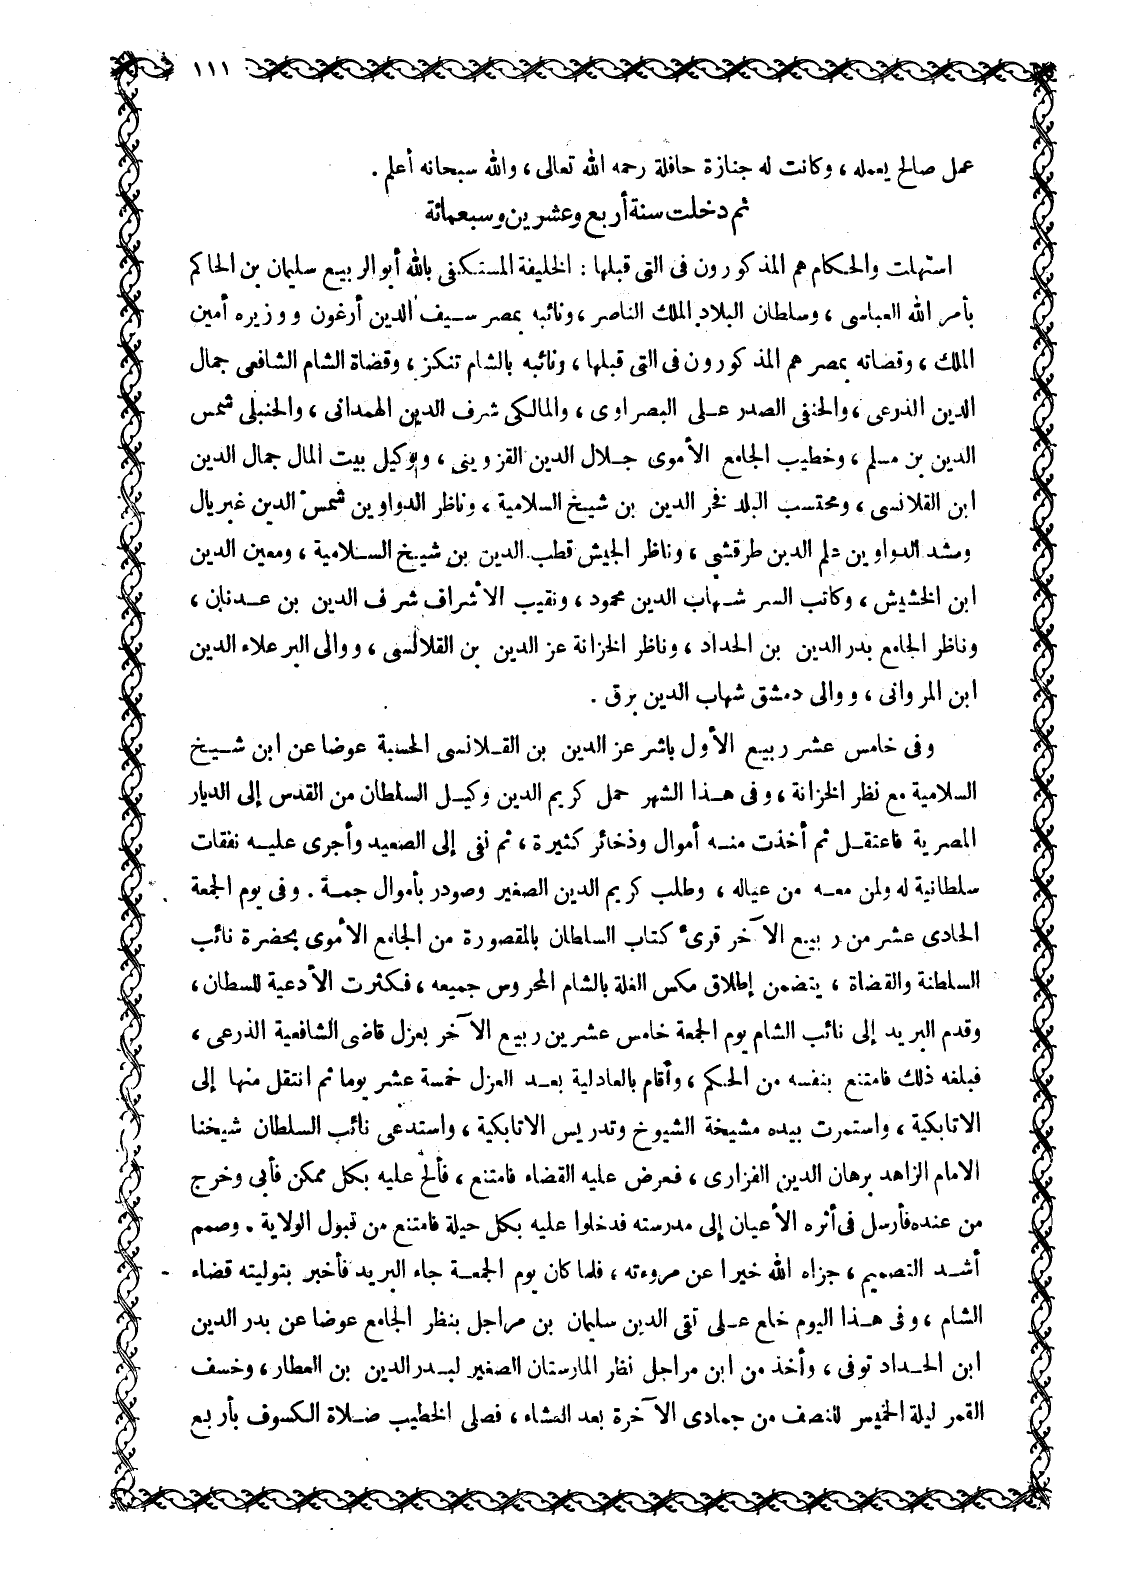 ١١١
عمل صالح يعمله ، وكانت له جنازة حافلة رحمه الله تعالى ، والله سبحانه أعلم .
ثم دخلت سنة أربع وعشرين وسبعمائة
استهلت والحكام هم المذكورون فى التى قبلها : الخليفة المستكفى بالله أبو الربيع سليمان بن الحاكم
بأمر الله العباسى ، وسلطان البلاد الملك الناصر ، ونائبه بمصر سيف الدين أرغون ووزيره أمين
الملك ، وقضاته بمصر هم المذكورون فى التى قبلها ، ونائبه بالشام تنكز ، وقضاة الشام الشافعى جمال
الدين الذرعى ، والحنفى الصدر على البصراوى ، والمالكى شرف الدين الهمدانى ، والحنبلى شمس
الدين بن مسلم ، وخطيب الجامع الأموى جلال الدين القزوينى ، ووكيل بيت المال جمال الدين
ابن القلانسى ، ومحتسب البلد فخر الدين بن شيخ السلامية ، وناظر الدواوين شمس الدين غبريال
ومشد الدواوين علم الدين طرقشى ، وناظر الجيش قطب الدين بن شيخ السلامية ، ومعين الدين
ابن الخشيش ، وكاتب السر شهاب الدين محمود ، ونقيب الأشراف شرف الدين بن عدنان ،
وناظر الجامع بدر الدين بن الحداد ، وناظر الخزانة عز الدين بن القلانسى ، ووالى البر علاء الدين
ابن المروانى ، ووالى دمشق شهاب الدين برق .
وفى خامس عشر ربيع الأول باشر عز الدين بن القلانسى الحسبة عوضا عن ابن شيخ
السلامية مع نظر الخزانة ، وفى هذا الشهر حمل كريم الدين وكيل السلطان من القدس إلى الديار
المصرية فاعتقل ثم أخذت منه أموال وذخائر كثيرة ، ثم نفى إلى الصعيد وأجرى عليه نفقات
سلطانية له ولمن معه من عياله ، وطلب كريم الدين الصغير وصودر بأموال جمة . وفى يوم الجمعة
الحادى عشر من ربيع الآخر قرئ كتاب السلطان بالمقصورة من الجامع الأموى بحضرة نائب
السلطنة والقضاة ، يتضمن إطلاق مكس الغلة بالشام المحروس جميعه ، فكثرت الأدعية للسطان ،
وقدم البريد إلى نائب الشام يوم الجمعة خامس عشرين ربيع الآخر بعزل قاضى الشافعية الذرعى ،
فبلغه ذلك فامتنع بنفسه من الحكم ، وأقام بالعادلية بعد العزل خمسة عشر يوما ثم انتقل منها إلى
الاتابكية ، واستمرت بيده مشيخة الشيوخ وتدريس الاتابكية ، واستدعى نائب السلطان شيخنا
الامام الزاهد برهان الدين الفزارى ، فعرض عليه القضاء فامتنع ، فألح عليه بكل ممكن فأبى وخرج
من عنده فأرسل فى أثره الأعيان إلى مدرسته فدخلوا عليه بكل حيلة فامتنع من قبول الولاية . وصمم
أشد التصميم ، جزاه الله خيرا عن مروءته ، فلما كان يوم الجمعة جاء البريد فأخبر بتوليته قضاء
الشام ، وفى هذا اليوم خلع على تقى الدين سليمان بن مراجل بنظر الجامع عوضا عن بدر الدين
ابن الحداد توفى ، وأخذ من ابن مراجل نظر المارستان الصغير لبدر الدين بن العطار ، وخسف
القمر ليلة الخميس للنصف من جمادى الآخرة بعد العشاء ، فصلى الخطيب صلاة الكسوف بأربع